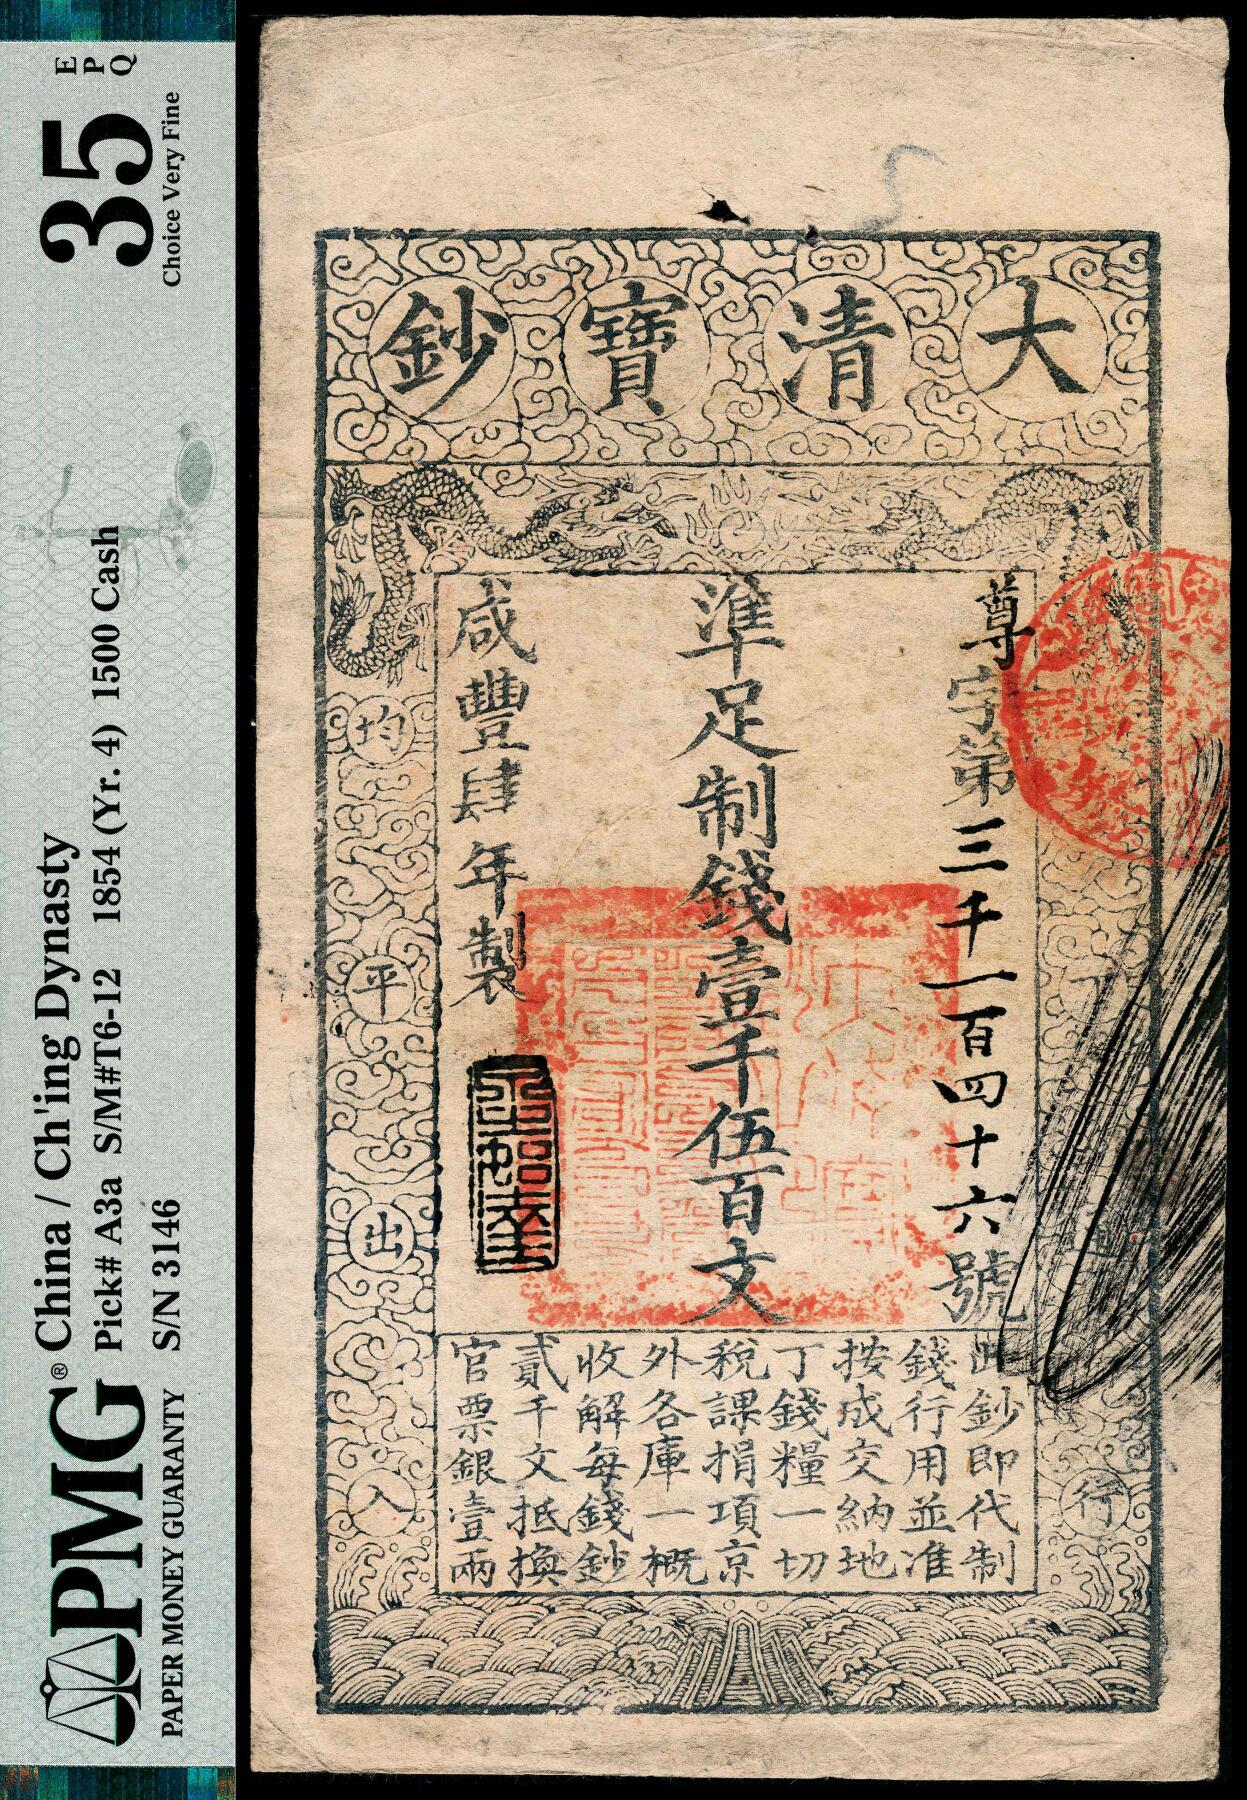 PMG®
PAPER MONEY GUARANTY
China / Ch'ing Dynasty
Pick# A3a S/M#T6-12 1854 (Yr. 4) 1500 Cash
S/N 3146
35
EPQ
Choice Very Fine
大清寶鈔
尊字第三千一百四十六號
準足制錢壹千伍百文
咸豐肆年製
均平出入
行
此鈔即代制
錢行用並准
按成交納地
丁錢糧一切
稅課捐項京
外各庫一概
收解每錢鈔
貳千文抵換
官票銀壹兩